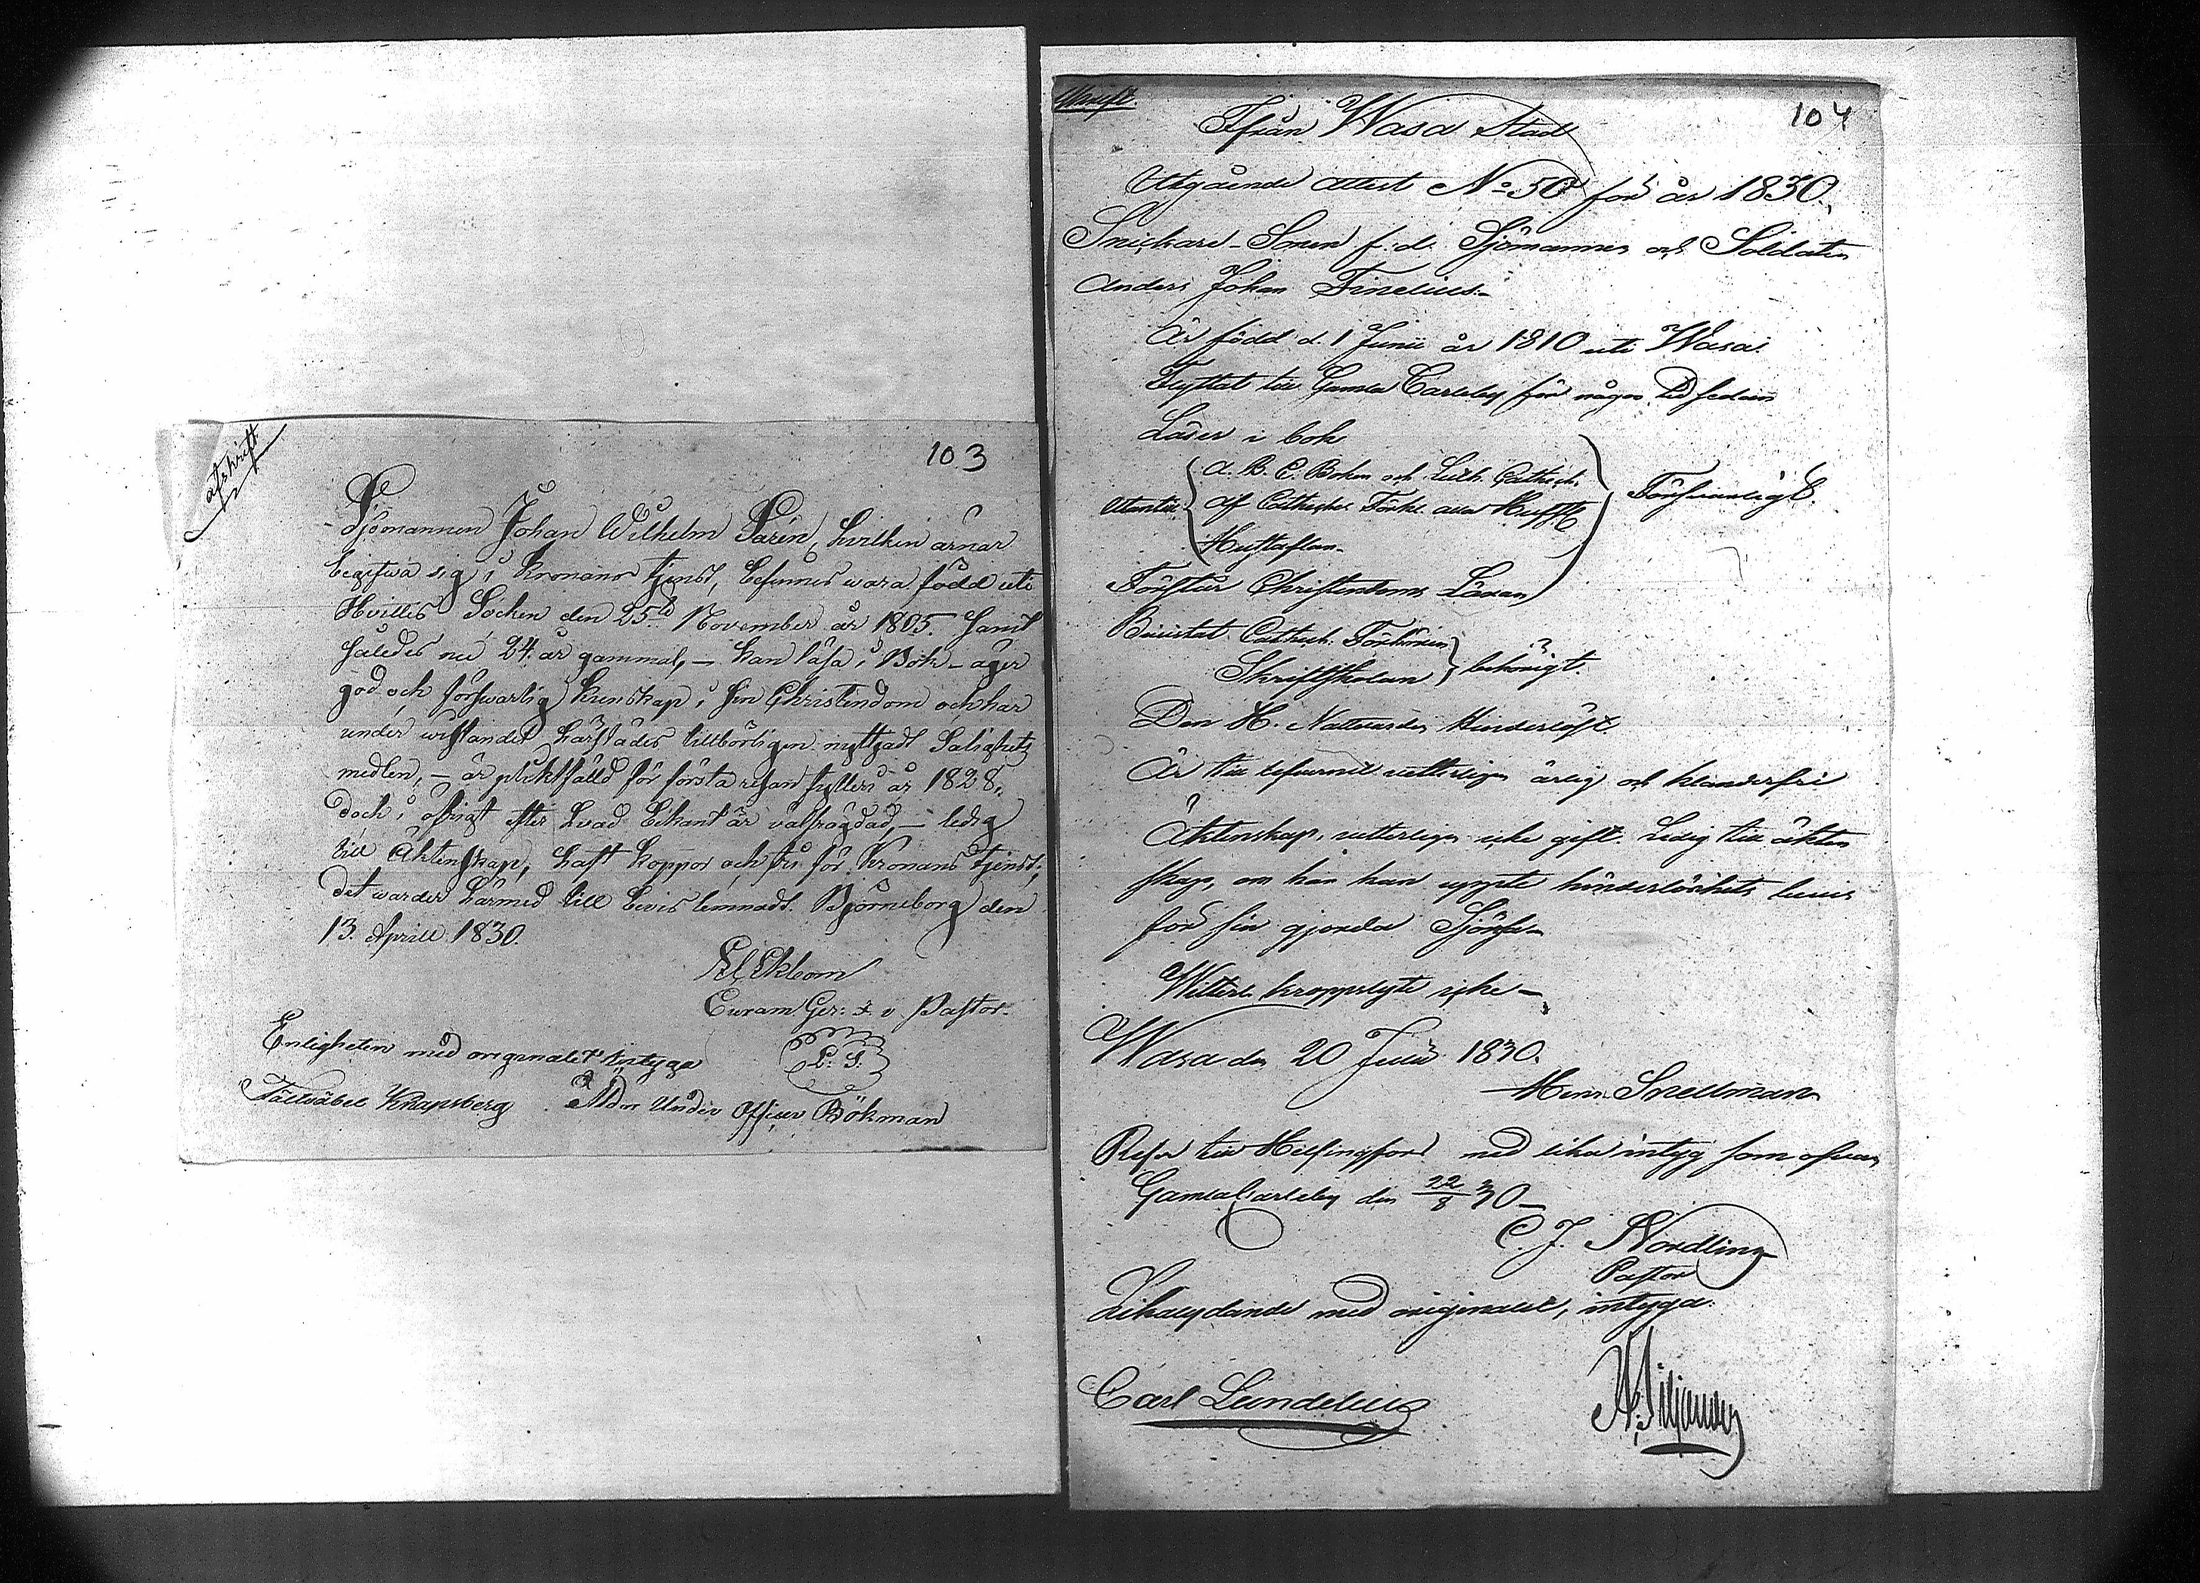 afskrift
103
Sjömannen Johan Wilhelm Sarén, hvilken ärnar
begifwa sig i Kronans tjenst, befinnes wara född uti
Hvittis Socken den 25te November år 1805. samt
således nu 24. år gammal, – kan läsa i Bok – äger
god och förswarlig kunskap i sin Christendom och har
under wistandet härstädes tillbörligen nyttjadt Salighets
medlen, – är pliktfälld för första resan fylleri år 1828,
doch i öfrigt efter hvad bekant är välfrägdad, – ledig
till Äktenskap, haft koppor och fri för Kronans tjenst;
det warder härmed till bevis lemnadt. Björneborg den
13. Aprill 1830.
Ekbom
Curam Ger: & v. Pastor.
L. S.
Enligheten med originalet intyga
Fältväbel Knapsberg Äldre Under Officer Bökman
104
Ifrån Wasa Stad
Utgående attest No 50 för år 1830.
Snickare-Sonen f. d. Sjömannen och Soldaten
Anders Johan Finelius.
Är född d. 1 Junii år 1810 uti Wasa.
Flyttat till Gamla Carleby för någon tid sedan
Läser i bok
Utantill A. B. C. Boken och Luth. Cathech.
Hustaflan
Försvarligt.
Förstår Christendoms Läran
Bivistat Cathech. Förhören
Skriftskolan behörigt.
Den H. Nattvarden Hinderlöst.
Är till lefvernet vetterligen ärlig och klanderfri
Äktenskap, vetterligen icke gift. Ledig till äkten
skap, om han kan uppte hinderlöshets bevis
för sin gjorda Sjöresa
Witterl. kroppslyte icke –
Wasa den 20 Julii 1830.
Henr. Snellman
Reser till Helsingfors med lika intyg som ofvan
GamlaCarleby den 22/8 30 –
C. J. Nordling
Pastor
Likalydande med originalet, intyga.
Carl Lundelius